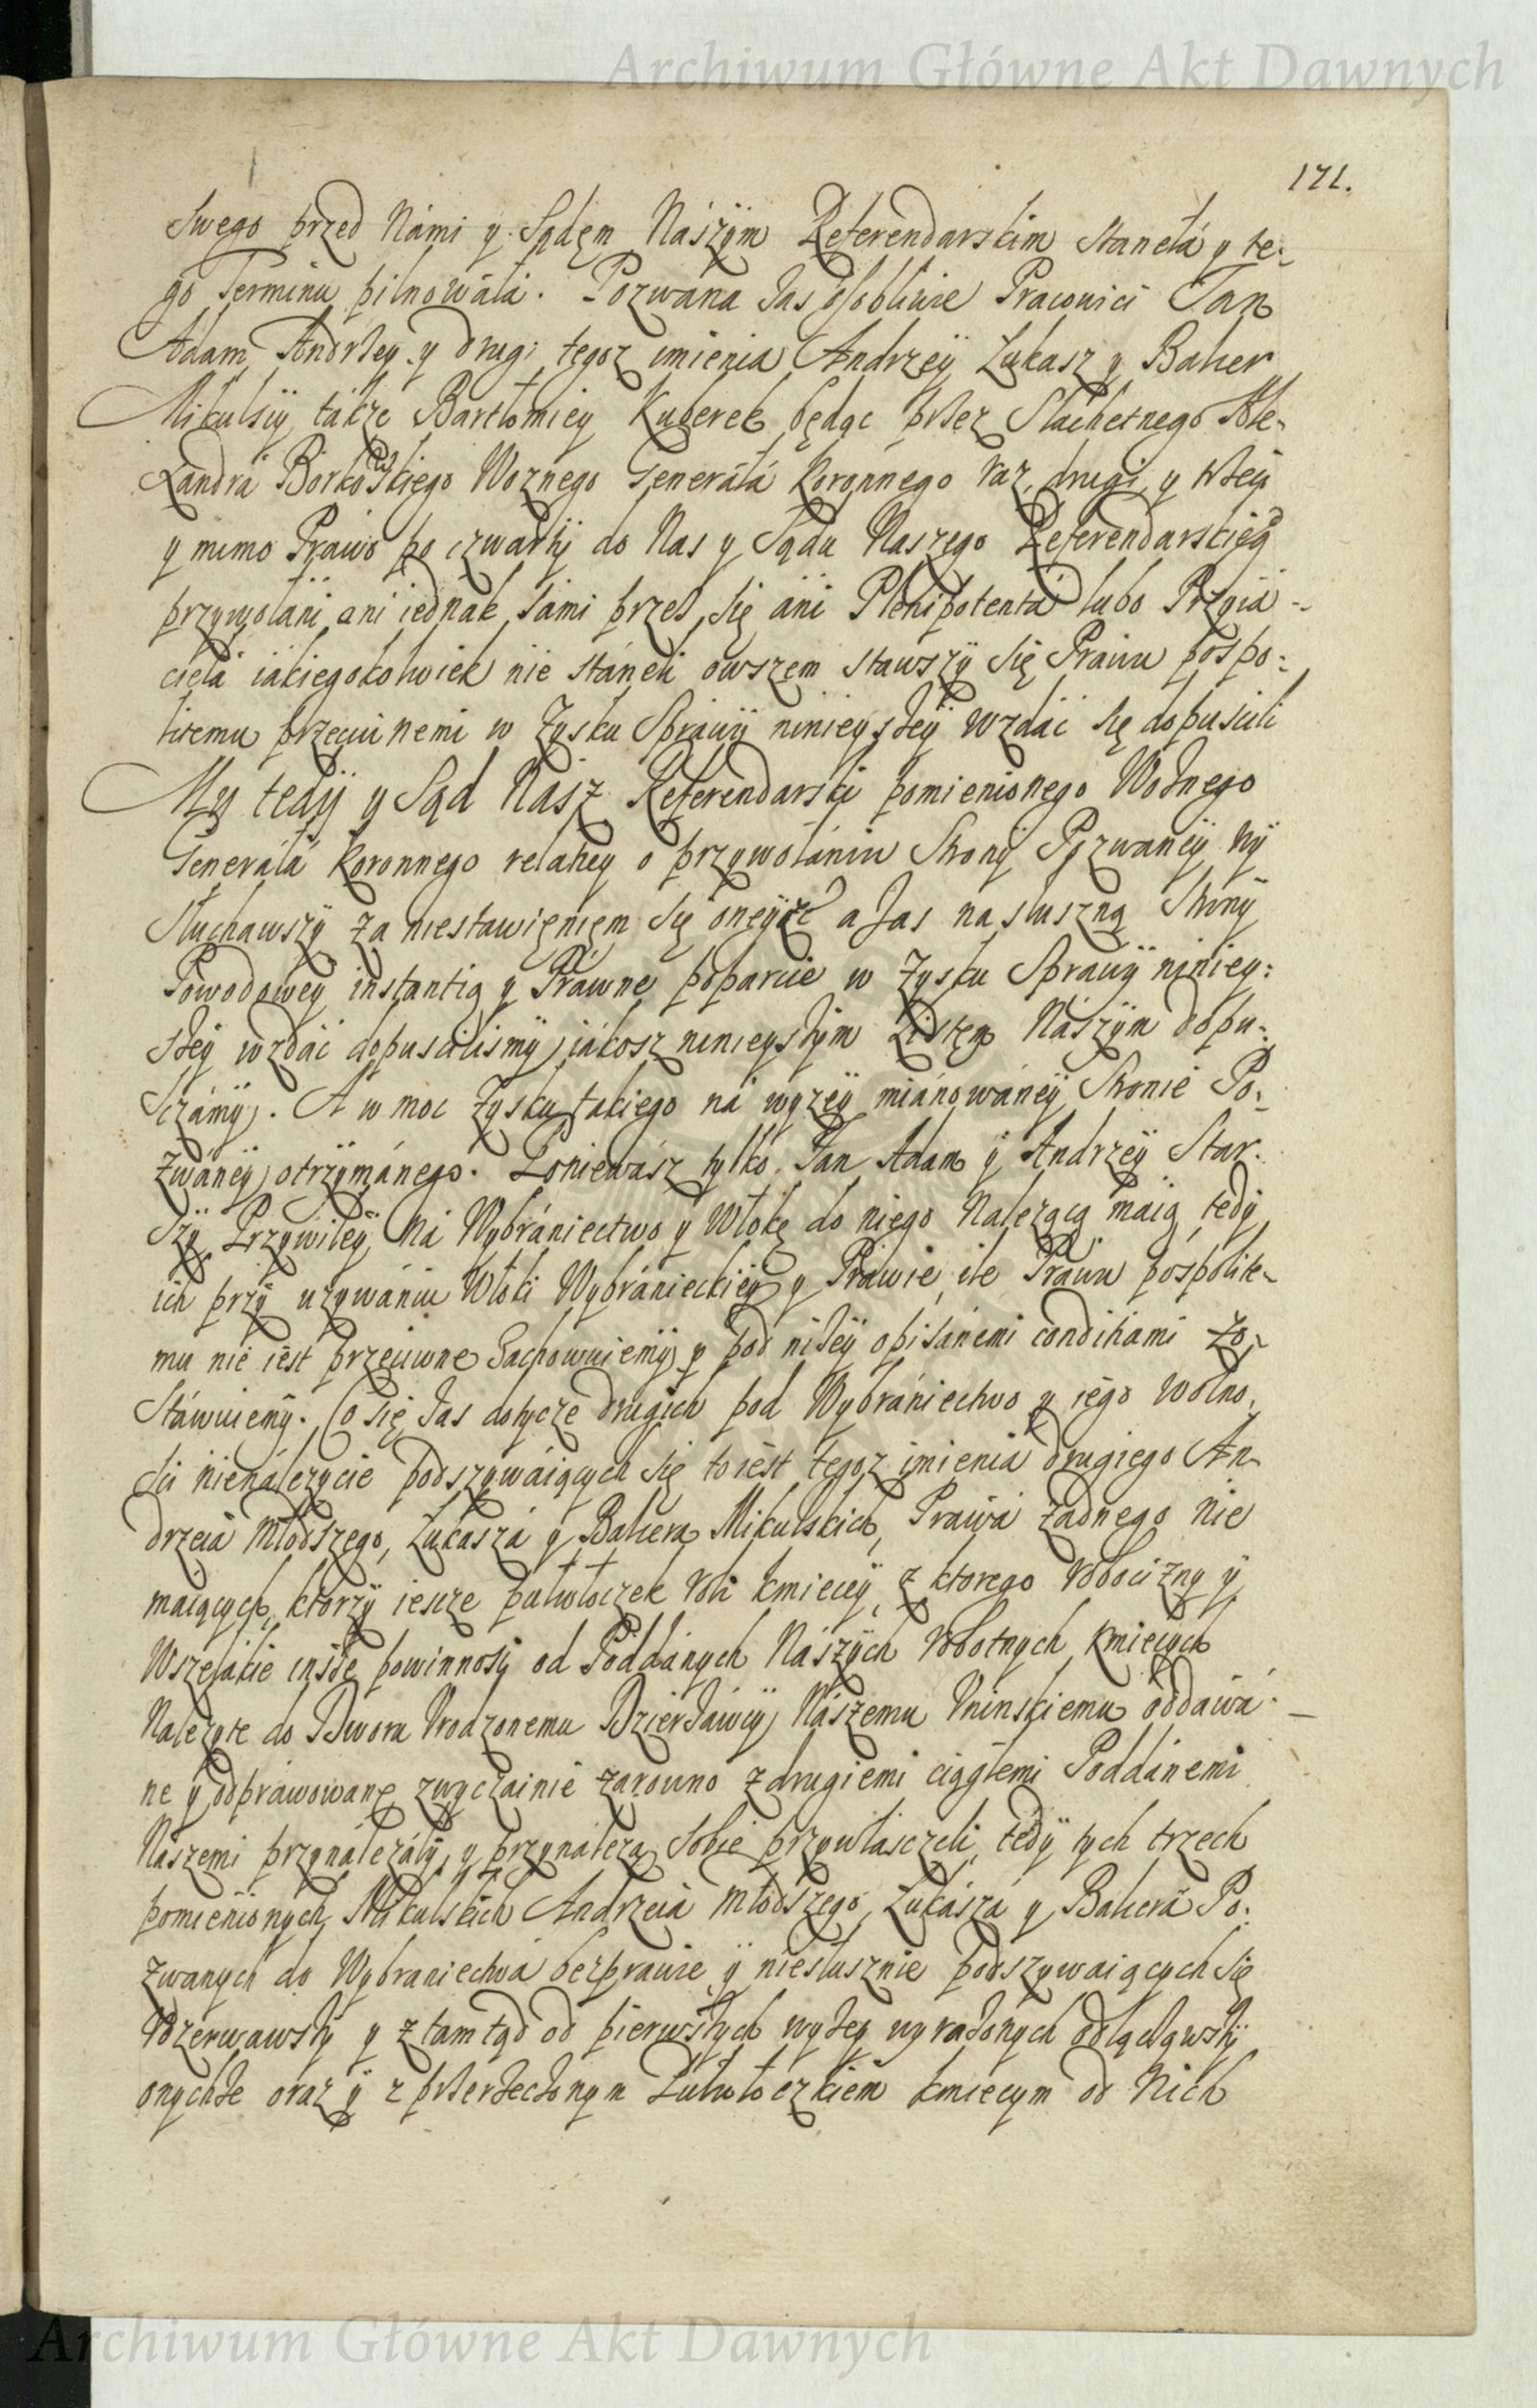 Archiwum Główne Akt Dawnych
171.
Swego przed Námi y Sądęm Nászÿm Referendarskim Stanęłá y te-
go Terminu pilnowáła. Pozwána zas osobliwie Pracowici Jan
Adam, Andrzey y drugi tegoz imienia Andrzeÿ Łukasz y Balcer
Mikulsÿ, tákze Bartłomiey Kuberek będąc przez Slachetnego Ale-
xandrá Borkowskiego Woznego Generáłá Koronnego raz, drugi, y trzeci
y mimo Prawo po czwartÿ do Nas y Sądu Naszego Referendarskieg
przywołáni, ani iednák sámi przez się áni Plenipotentá lubo Przyia-
cielá iákiegokolwiek nie stáneli owszem stawszÿ się Práwu pospo-
litemu przeciwnemi w Zysku Spráwÿ ninieyszeÿ wzdáć się dopuścili
My tedÿ y Sąd Nász Referendarski pomienionego Woznego
Generáłá Koronnego relatiey o przywołániu Stronÿ Pozwáneÿ wÿ
słuchawszÿ za niestawięnięm się oneÿze a zas na słuszną Stronÿ
Powodowey instantią y Práwne poparcie w Zysku Sprawÿ niniey-
szeÿ wzdáć dopuscilismÿ, iákosz ninieyszÿm Listęm Nászÿm dopu-
sczámÿ. A w moc Zysku takiego ná wyzeÿ miánowáneÿ Stronie Po-
zwáneÿ otrzÿmánego. Poniewász tylko Jan Adam ÿ Andrzeÿ Star-
szÿ Przÿwileÿ ná Wybrániectwo y Włokę do niego nalezącą máią, tedÿ
ich przÿ uzywániu Włoki Wybránieckieÿ y Práwie, ile Práwu pospolite-
mu nie iest przeciwne Zachowuiemÿ y pod nizeÿ opisánemi conditiami zo-
stáwuiemÿ. Co się zas dotycze drugich pod Wybrániectwo y iego wolno-
sci nienáleżycie podszywáiących się to iest tegoz imienia drugiego An-
drzeiá Młodszego, Łukaszá y Balcera Mikulskich, Práwá zadnego nie
maiących, ktorzÿ iescze pułwłoczek roli kmieceÿ, z ktorego robocizny ÿ
wszelákie insze powinnosci od Poddánych Nászÿch robotnych kmiecych
nalezyte do Dworu Urodzonemu Dzierzáwcÿ Nászemu Kninskiemu oddawá-
ne y odpráwowáne zwyczáinie zarowno z drugiemi ciągłemi Poddánemi
Nászemi przynálezáłÿ, y przynálezą, sobie przywłasczeli, tedÿ tych trzech
pomienionych Mikulskich Andrzeiá Młodszego, Łukászá y Balcerá Po-
zwanych do Wybraniectwá bezprawie ÿ niesłusznie podszywaiących się
odzerwawszÿ y z tamtąd od pierwszych wyzey wyrazonych odłączÿwszÿ
onychze oraz ÿ z przerzeczonym Pułwłoczkiem kmiecym od Nich
Archiwum Główne Akt Dawnych